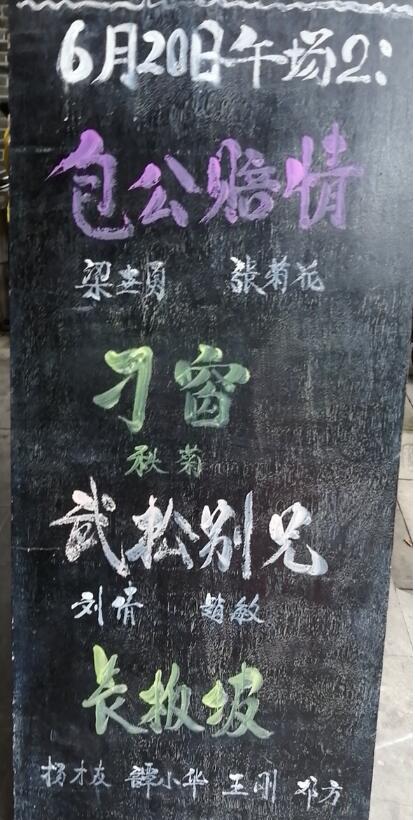 6月20日午场2:
包公赔情
梁世勇 張菊花
刁窗
秋菊
武松别兄
刘倩 趙敏
长板坡
杨才友 譚小华 王刚 邓方